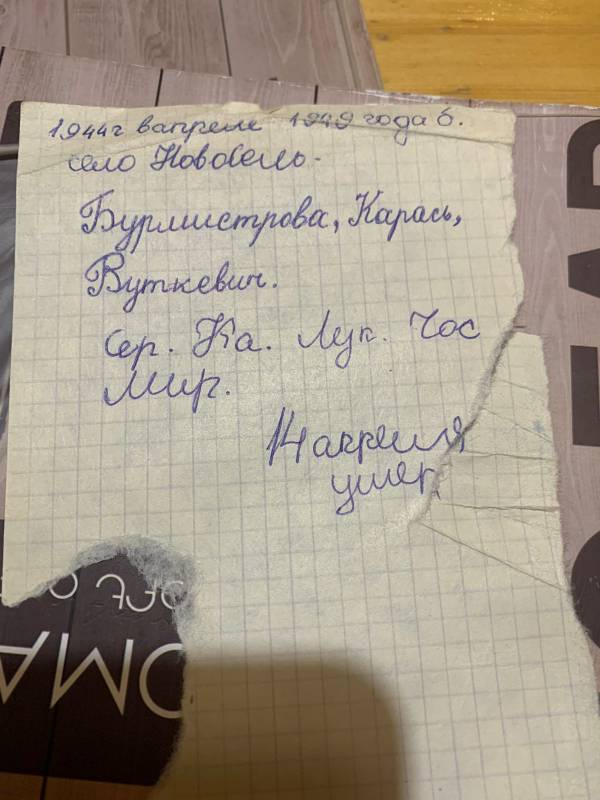 1944г в апреле 1949 года б.
село Новосель.
Бурмистрова, Карась,
Вуткевич.
Сер. Ка. Лук. Чос
Мир.
14 апреля
умер